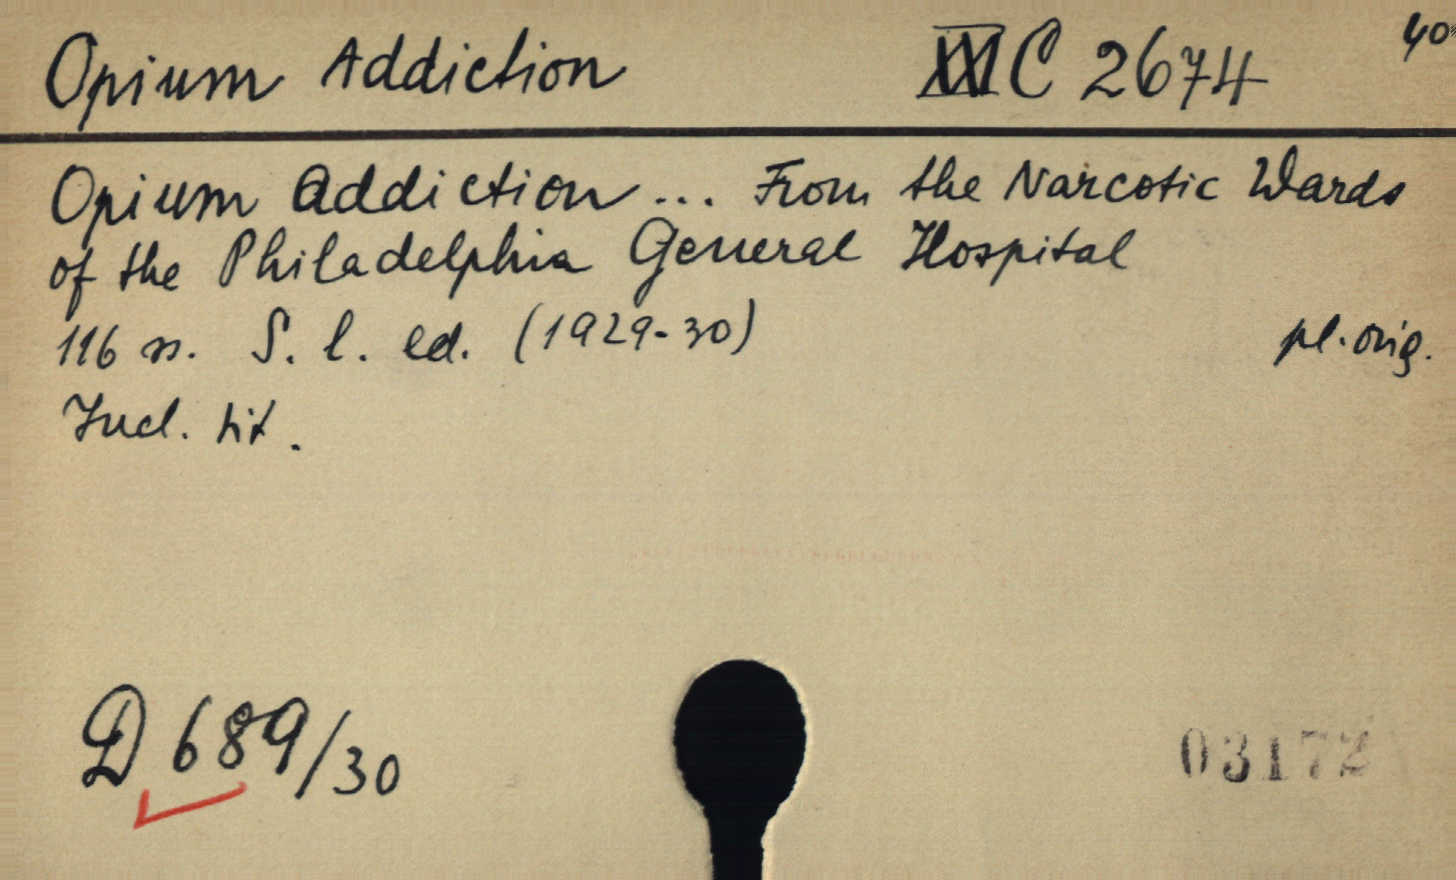 Opium Addiction XXI C 2674 40
Opium Addiction ... From the Narcotic Wards
of the Philadelphia General Hospital
116 ss. S. l. ed. (1929-30) pl. orig.
Incl. tit.
D 689/30
03172